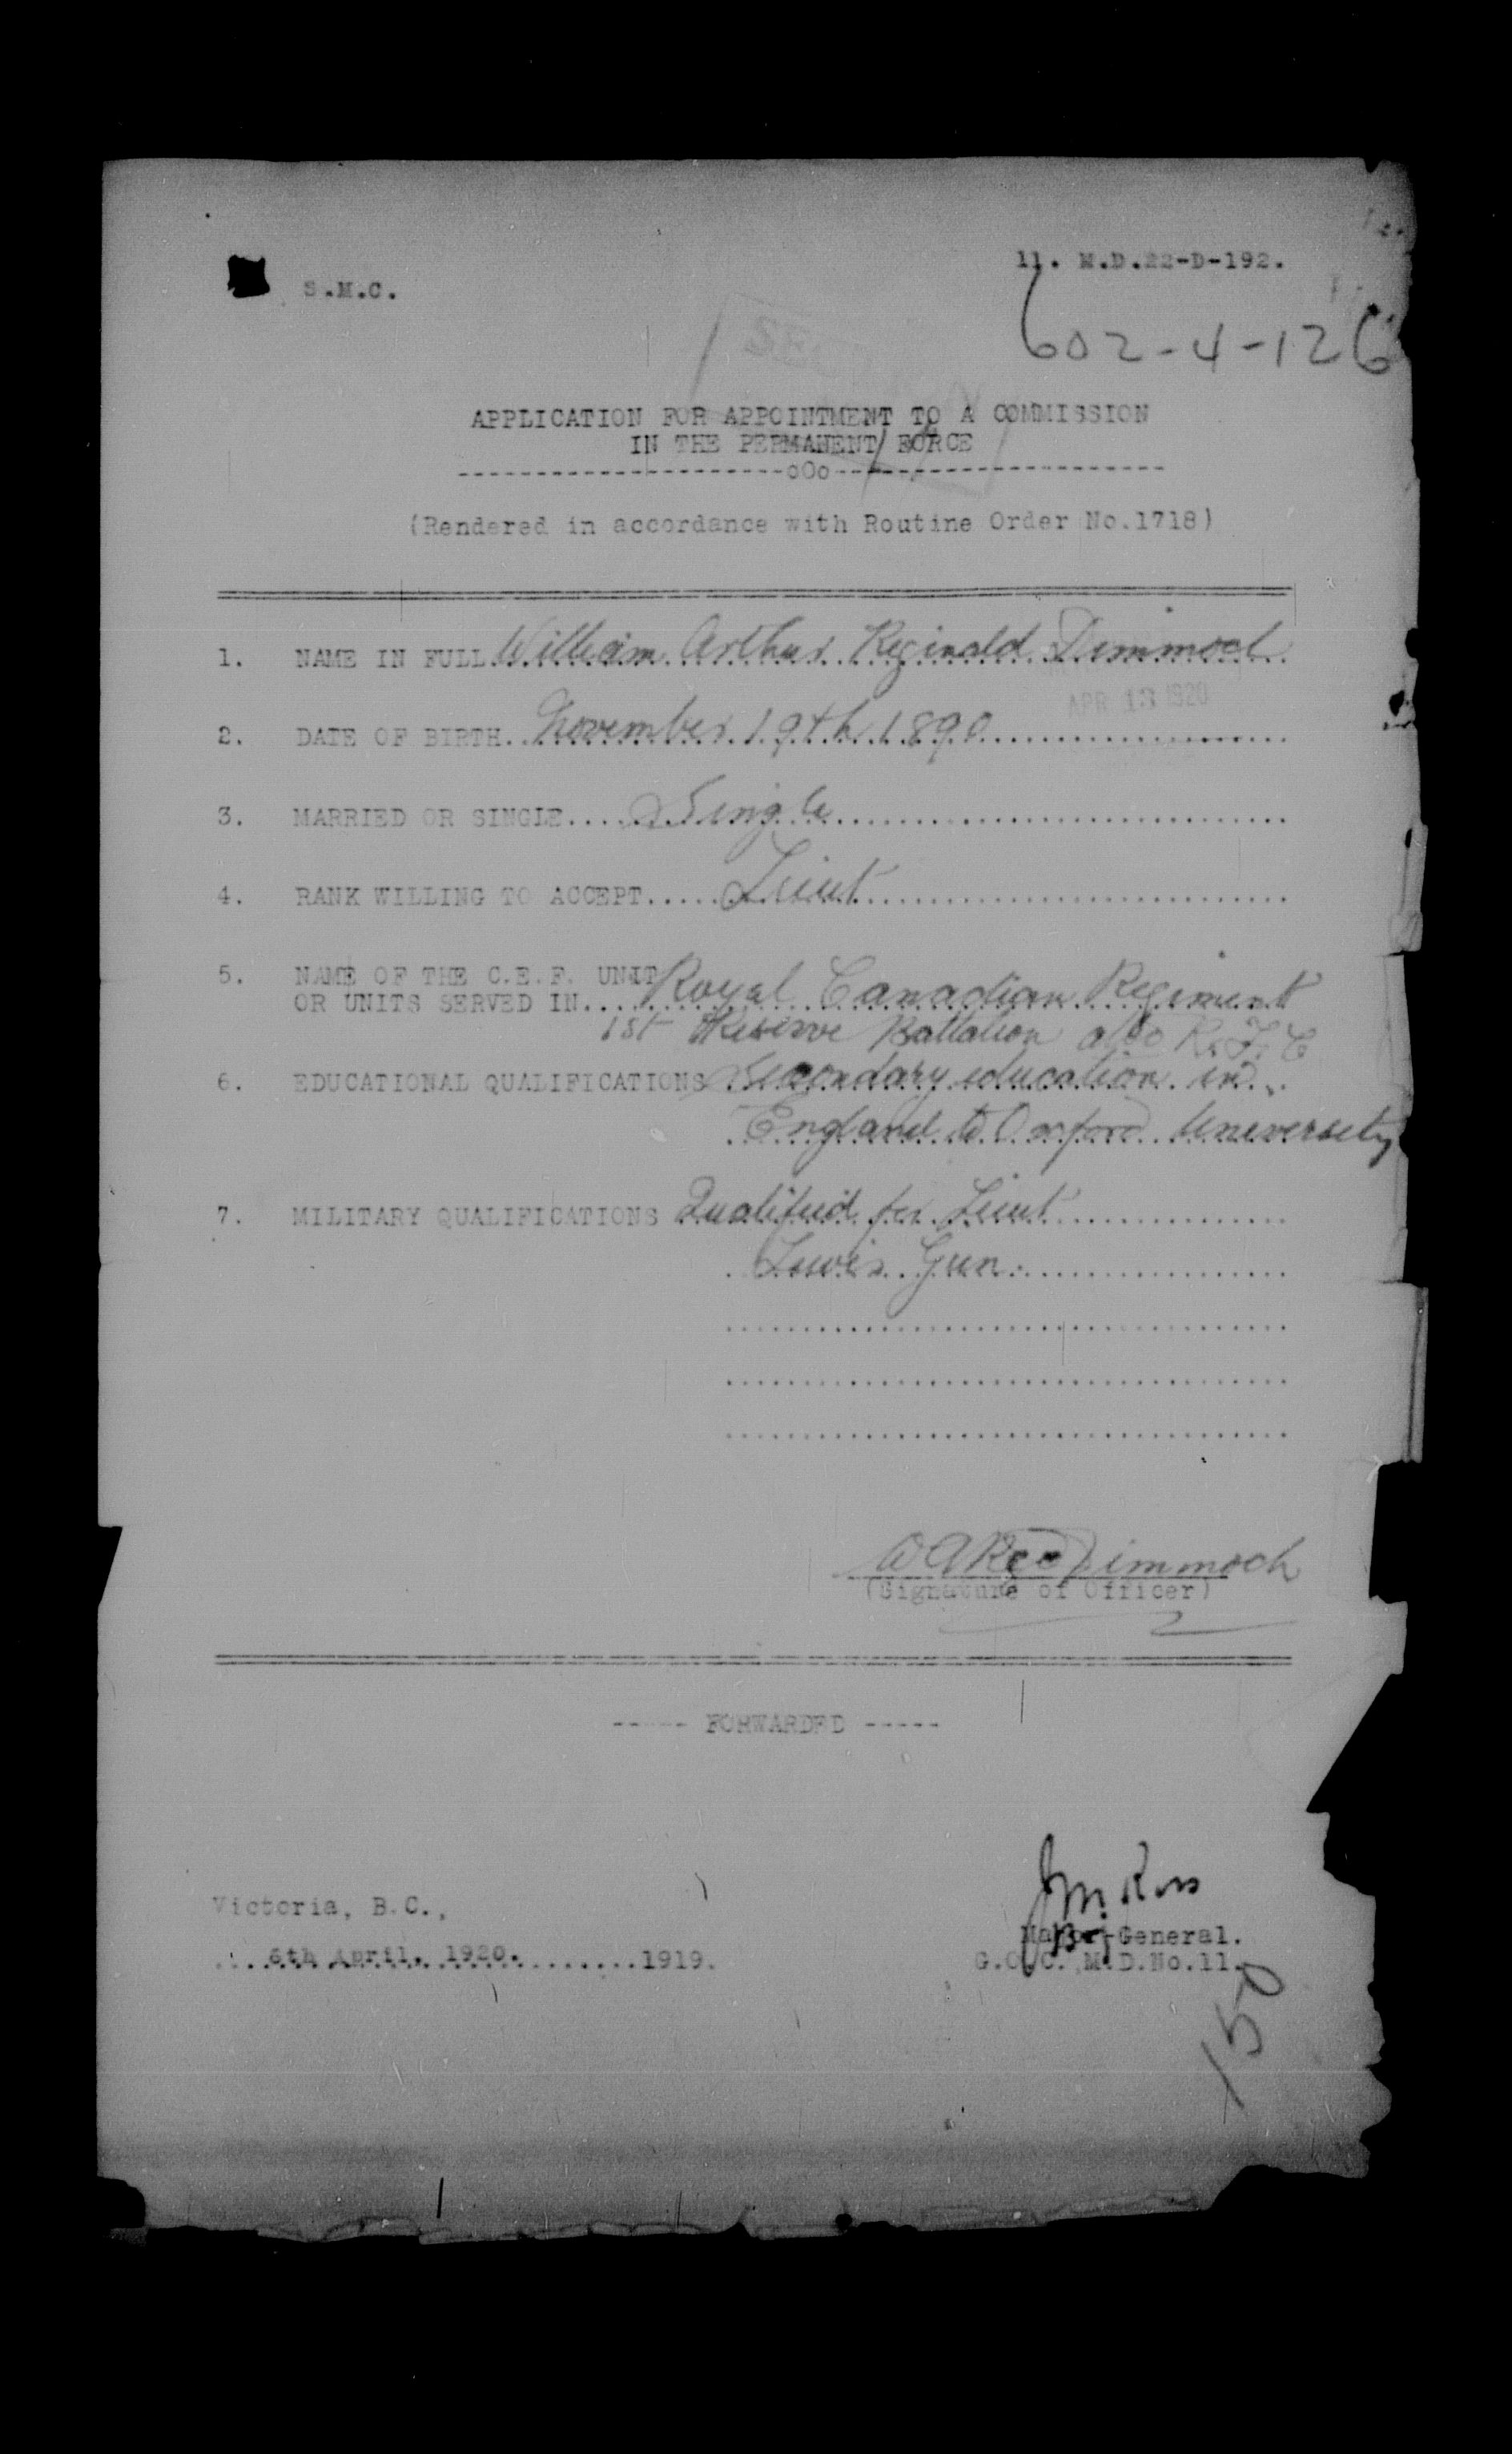 11. M.D.22-D-192.
S.M.C.
602-4-126
APPLICATION FOR APPOINTMENT TO A COMMISSION
IN THE PERMANENT FORCE
---------------------oOo----------------------
(Rendered in accordance with Routine Order No.1718)
1. NAME IN FULL. William Arthur Reginald Dimmock
APR 13 1920
2. DATE OF BIRTH. November 19th 1890
3. MARRIED OR SINGLE.... Single
4. RANK WILLING TO ACCEPT..... Lieut
5. NAME OF THE C.E.F. UNIT
OR UNITS SERVED IN.... Royal Canadian Regiment
1st Reserve Battalion also R.F.C
6. EDUCATIONAL QUALIFICATIONS Secondary education in
England to Oxford University
7. MILITARY QUALIFICATIONS Qualified for Lieut
Lewis Gun.
W A Reg Dimmock
(Signature of Officer)
----- FORWARDED -----
Victoria, B.C.,
6th April, 1920. 1919.
J M Ross
Major-General.
G.O.C. M.D.No.11.
150